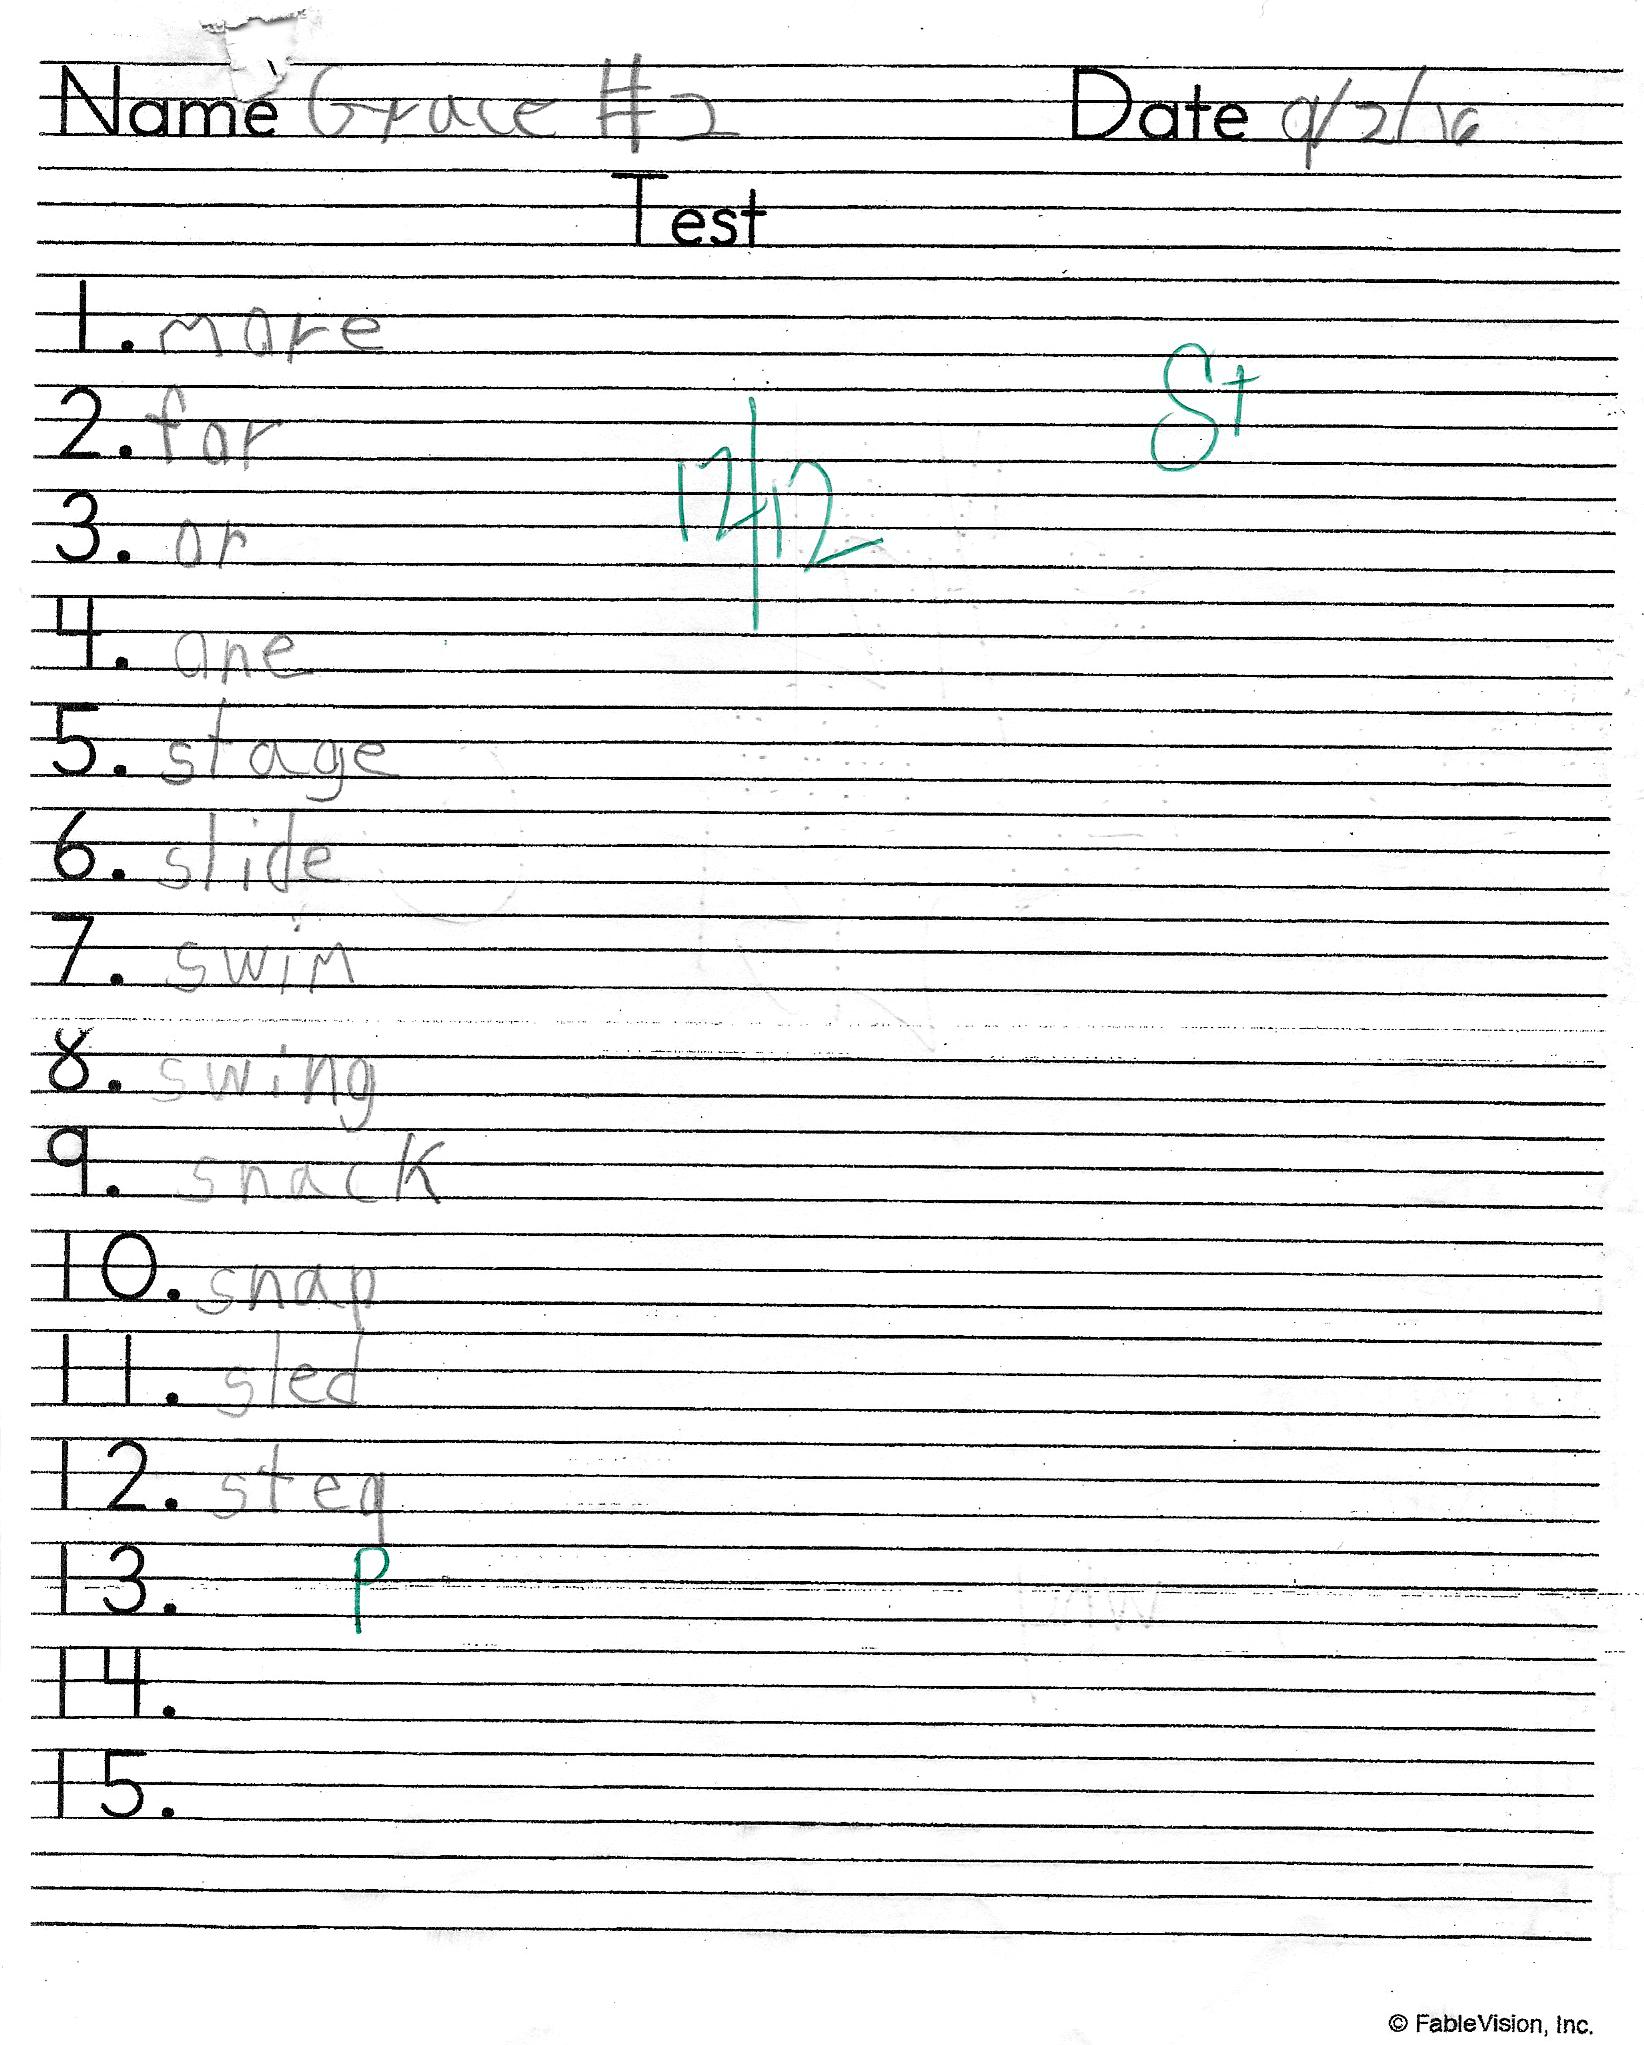 Name Grace #2 Date 9/2/16
Test
1. more
2. for
S+
12/12
3. or
4. one
5. stage
6. slide
7. swim
8. swing
9. snack
10. snap
11. sled
12. steq
13. p
14.
15.
© FableVision, Inc.